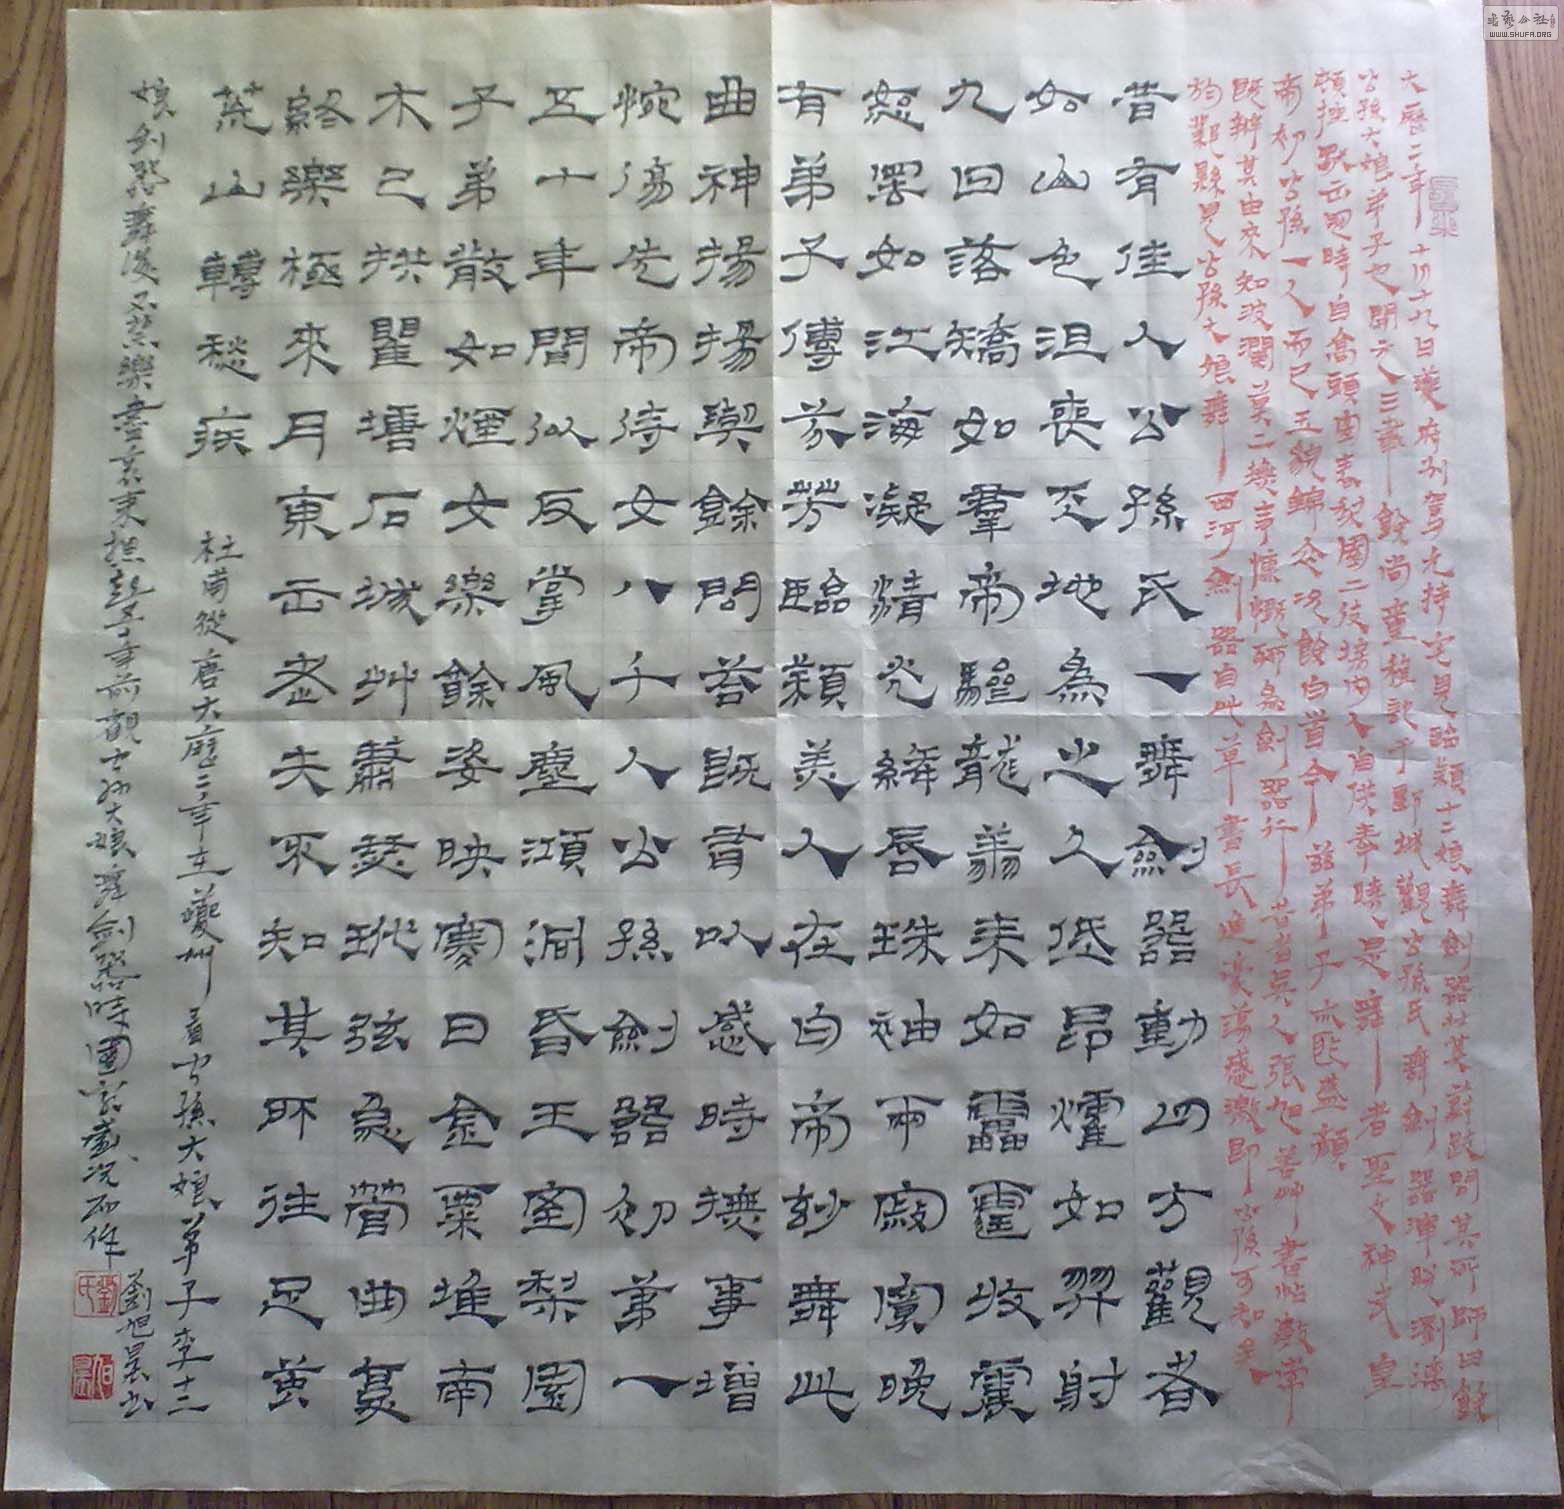 大曆二年十月十九日夔府別駕元持宅見臨潁十二娘舞劍器壯其蔚跂問其所師曰餘
公孫大娘弟子也開元三載餘尚童稚記于郾城觀公孫氏舞劍器渾脫瀏灕
頓挫獨出冠時自高頭宜春梨園二伎坊內人自供奉曉是舞者聖文神武皇
帝初公孫一人而已玉貌錦衣況餘白首今茲弟子亦匪盛顏
既辨其由來知波瀾莫二撫事慷慨聊為劍器行昔者吳人張旭善艸書帖數常
於鄴縣見公孫大娘舞西河劍器自此草書長進豪蕩感激即公孫可知矣
昔有佳人公孫氏一舞劍器動四方觀者
如山色沮喪天地為之久低昂燿如羿射
九日落矯如羣帝驂龍翔來如雷霆收震
怒罷如江海凝精光絳唇珠袖兩寂寞晚
有弟子傳芬芳臨潁美人在白帝妙舞此
曲神揚揚與餘問答既有以感時撫事增
惋傷先帝侍女八千人公孫劍器初第一
五十年間似反掌風塵澒洞昏王室梨園
子弟散如煙女樂餘姿映寒日金粟堆南
木已拱瞿塘石城艸蕭瑟玳弦急管曲复
終樂極來月東出老夫不知其所往足黃
荒山轉愁疾
杜甫從唐大曆二年在夔州看公孫大娘弟子李十二
娘劍器舞後不禁樂盡哀来想起五十年前觀公孫大娘舞劍器時國家盛況而作
劉旭书
劉氏
WWW.SHUFA.ORG